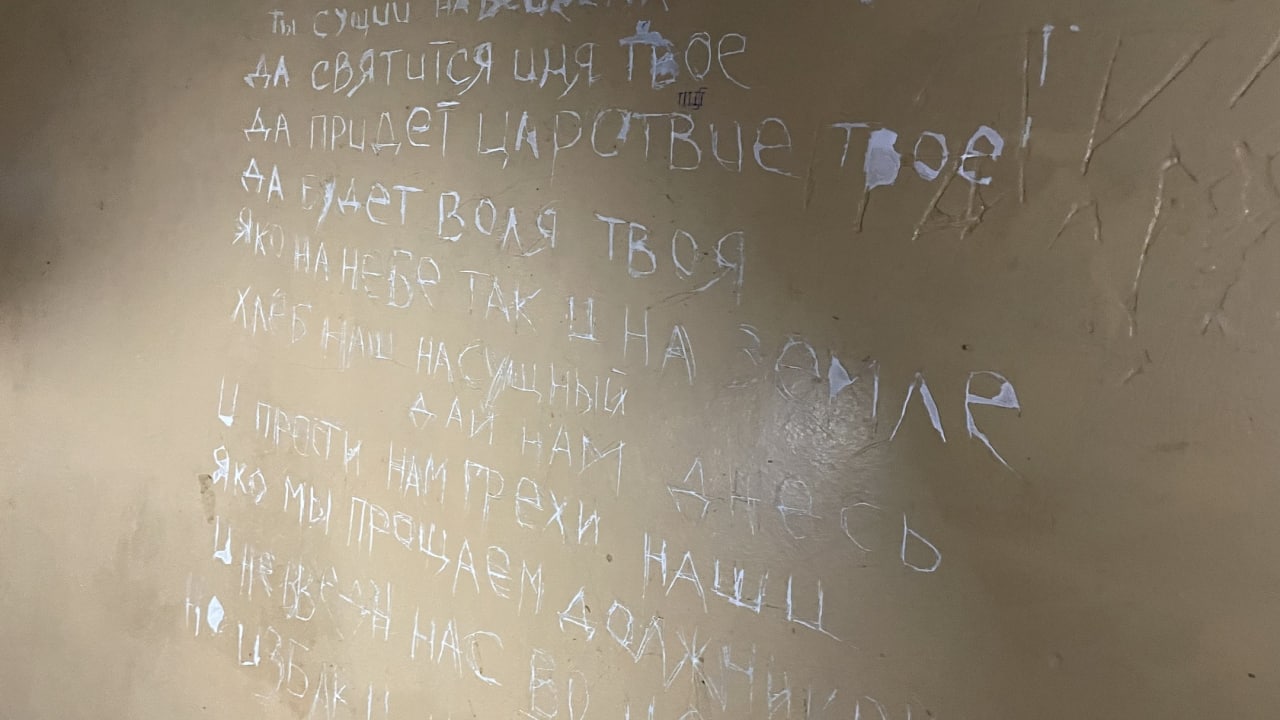 ты сущий на небесах
да святится имя твое
да придет царствие твое
да будет воля твоя
яко на небе так и на земле
хлеб наш насущный
дай нам днесь
и прости нам грехи наши
яко мы прощаем должник
и не введи нас во
но избави